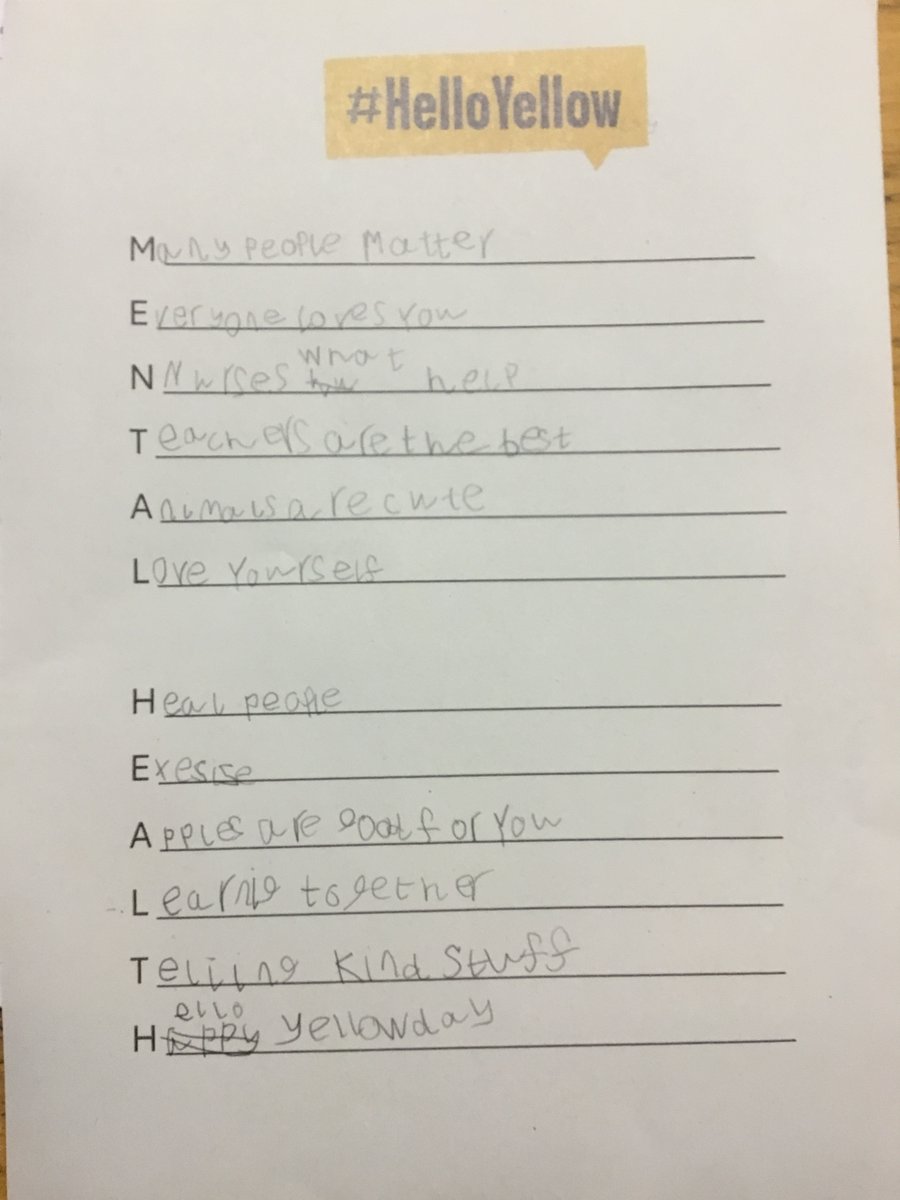 #HelloYellow
Many people Matter
Everyone loves you
N Nurses what help
Teachers are the best
Animals are cute
Love yourself
Heal people
Exesise
Apples are good for you
Learnig together
Telling kind stuff
Hello yellowday